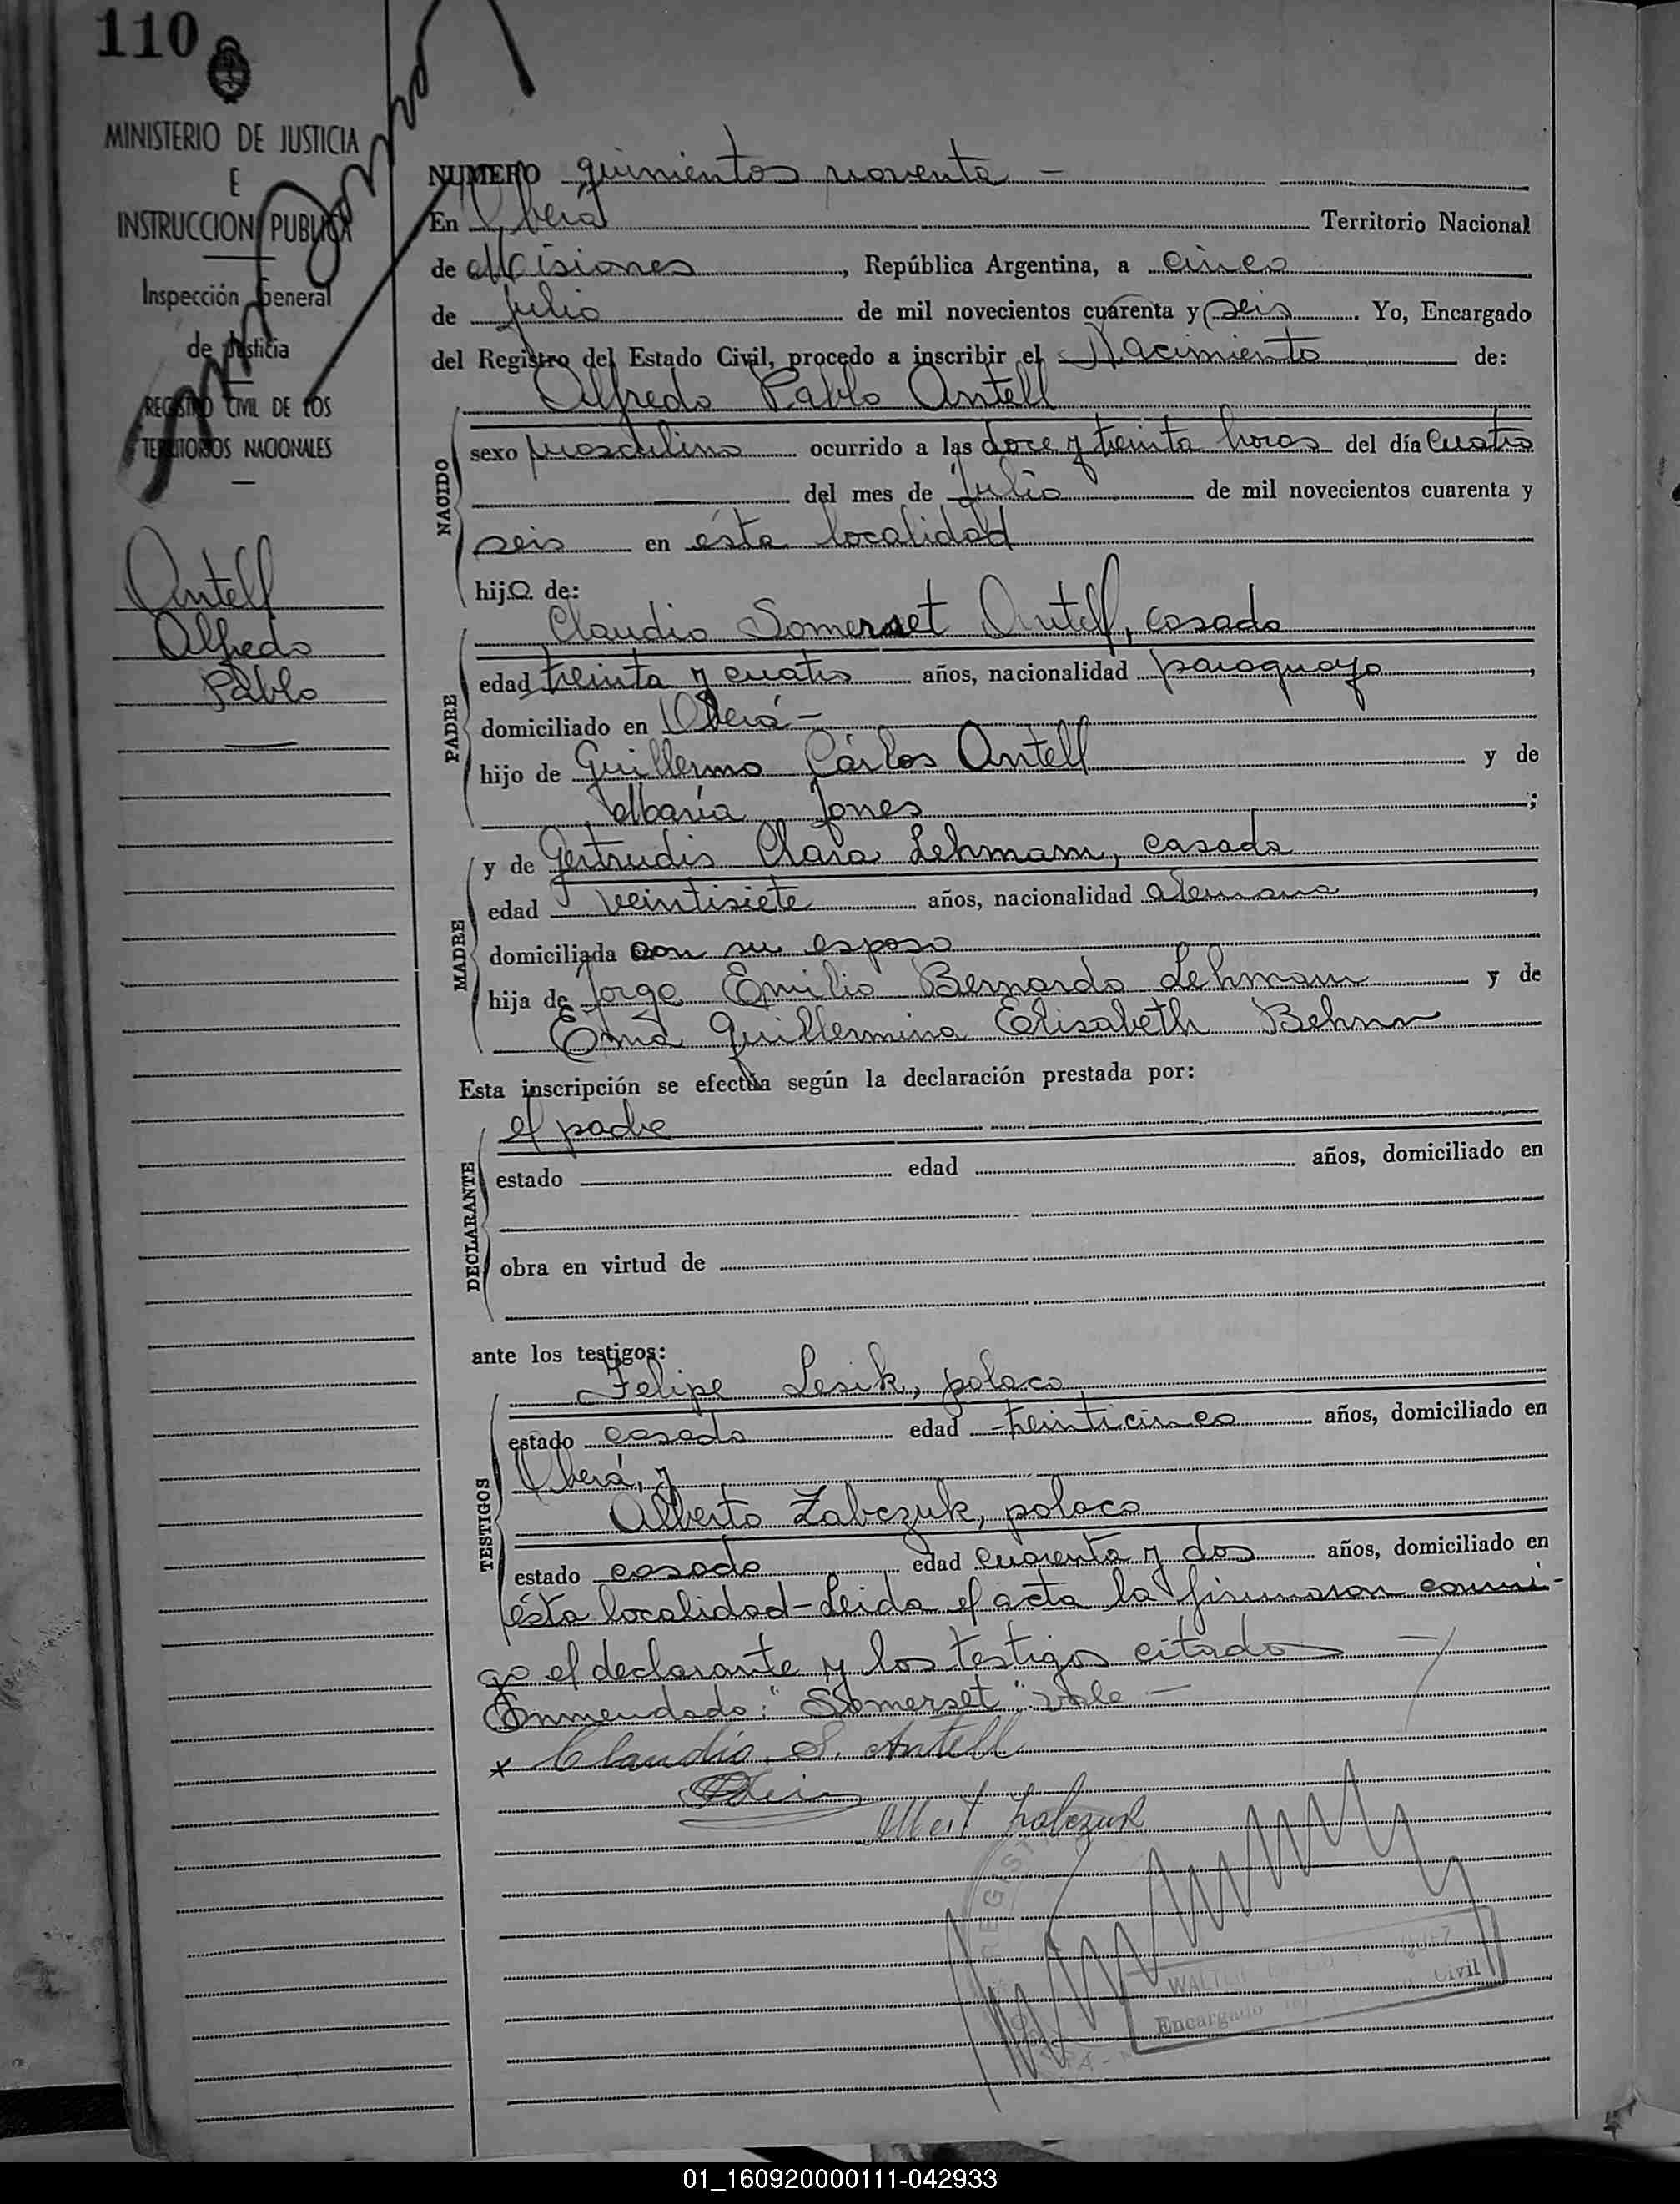 110
MINISTERIO DE JUSTICIA
E
INSTRUCCION PUBLICA
Inspección General
de Justicia
REGISTRO CIVIL DE LOS
TERRITORIOS NACIONALES
Antell
Alfredo
Pablo
NUMERO quinientos noventa –
En Oberá Territorio Nacional
de Misiones, República Argentina, a cinco
de Julio de mil novecientos cuarenta y seis. Yo, Encargado
del Registro del Estado Civil, procedo a inscribir el Nacimiento de:
Alfredo Pablo Antell
NACIDO
sexo masculino ocurrido a las doce y treinta horas del día cuatro
del mes de Julio de mil novecientos cuarenta y
seis en ésta localidad
hijo de:
Claudio Somerset Antell, casado
PADRE
edad treinta y cuatro años, nacionalidad paraguayo,
domiciliado en Oberá –
hijo de Guillermo Cárlos Antell y de
María Jones;
MADRE
y de Gertrudis Clara Lehmann, casada
edad veintisiete años, nacionalidad alemana,
domiciliada con su esposo
hija de Jorge Emilio Bernardo Lehmann y de
Ema Guillermina Elisabeth Behnn
Esta inscripción se efectúa según la declaración prestada por:
el padre
DECLARANTE
estado edad años, domiciliado en
obra en virtud de
ante los testigos:
Felipe Lesik, polaco
TESTIGOS
estado casado edad treinticinco años, domiciliado en
Oberá, y
Alberto Zabczuk, polaco
estado casado edad cuarenta y dos años, domiciliado en
ésta localidad – Leida el acta la firmaron conmi-
go el declarante y los testigos citados –
Enmendado: "Somerset" vale –
x Claudio S. Antell
Albert Zabczuk
WALTER
Encargado Civil
01_160920000111-042933